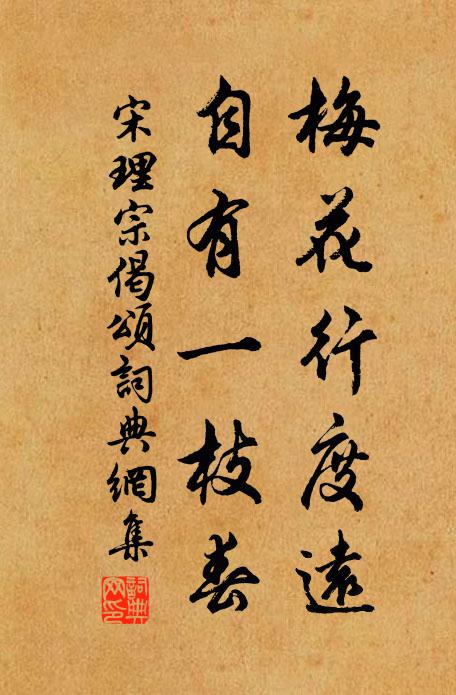 梅花行度遠
自有一枝春
宋理宗偈頌詞典網集
詞典網印